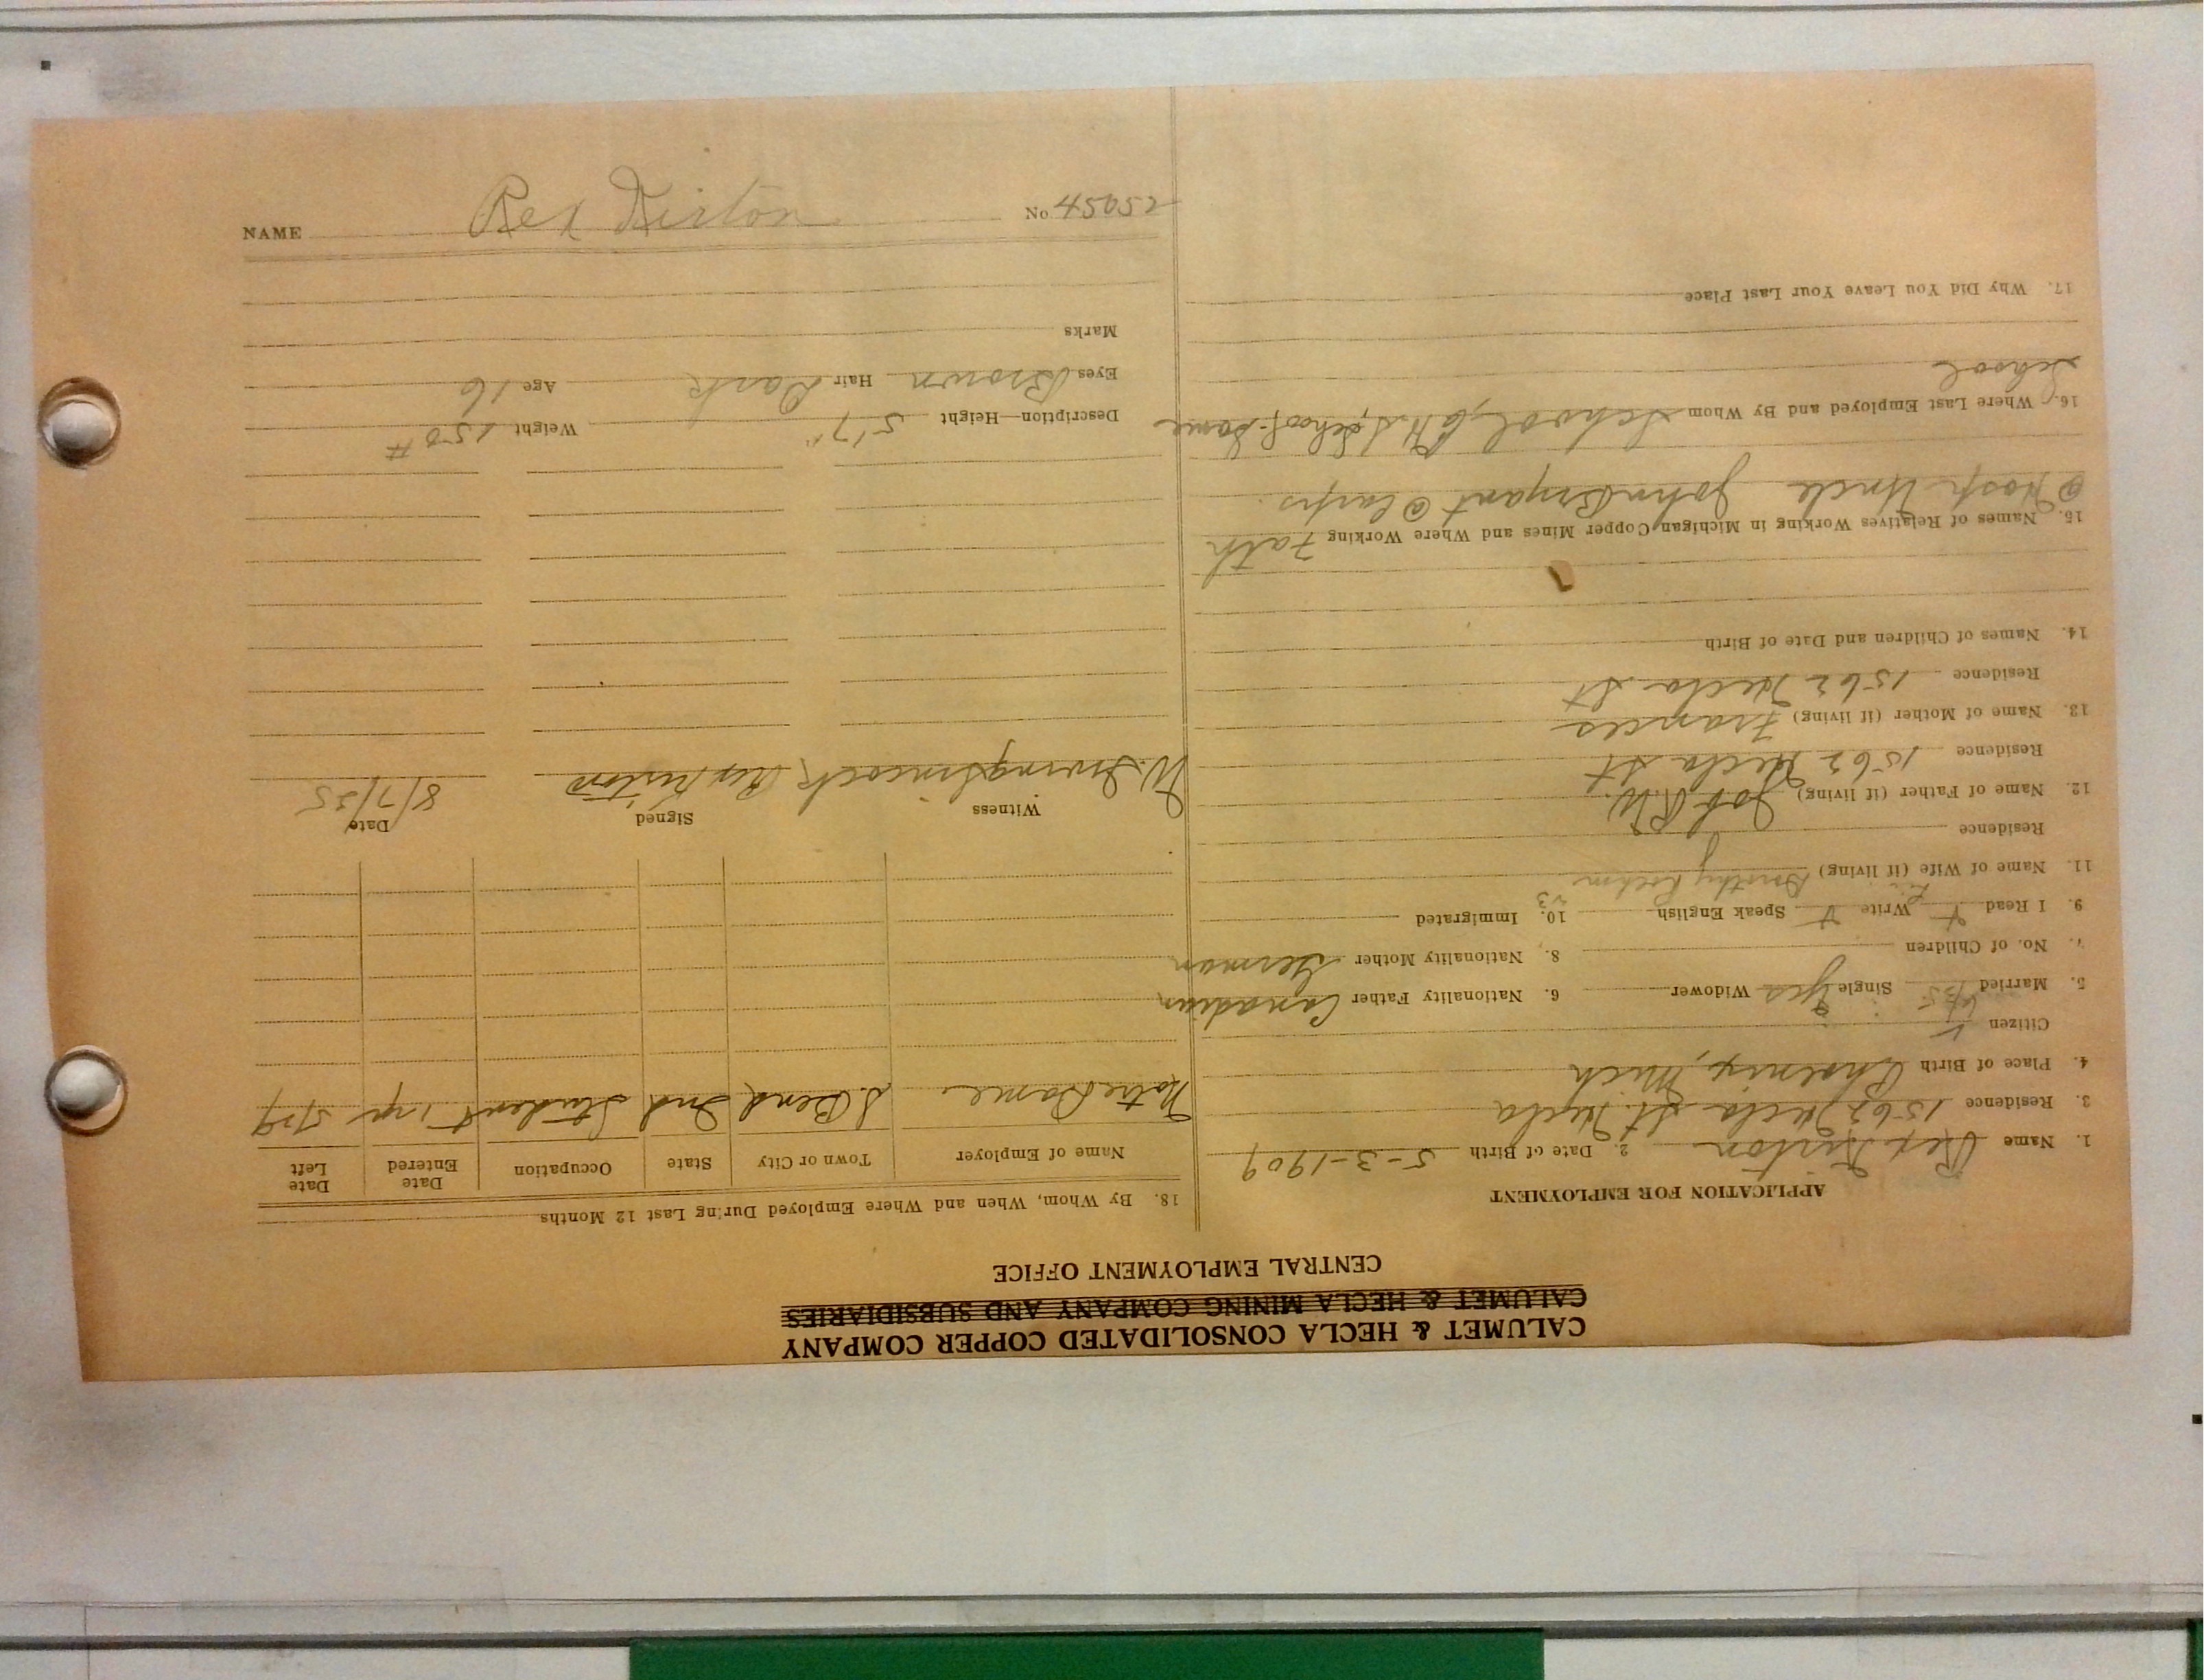 CALUMET & HECLA CONSOLIDATED COPPER COMPANY
CALUMET & HECLA MINING COMPANY AND SUBSIDIARIES
CENTRAL EMPLOYMENT OFFICE
APPLICATION FOR EMPLOYMENT
1. Name Rex Kirton 2. Date of Birth 5-3-1909
3. Residence 1562 Hecla St. Hecla
4. Place of Birth Phoenix, Mich
Citizen
5. Married Single Yes Widower 6. Nationality Father Canadian
7. No. of Children 8. Nationality Mother German
9. I Read Write Speak English 10. Immigrated
11. Name of Wife (if living) Dorothy
Residence
12. Name of Father (if living) Job R.W.
Residence 1562 Hecla St
13. Name of Mother (if living) Frances
Residence 1562 Hecla St
14. Names of Children and Date of Birth
15. Names of Relatives Working in Michigan Copper Mines and Where Working Fath
@ Hosp Uncle John Bryant @ Carps.
16. Where Last Employed and By Whom School, C.H.S, School-Dome
School
17. Why Did You Leave Your Last Place
18. By Whom, When and Where Employed During Last 12 Months
Name of Employer Town or City State Occupation Date Entered Date Left
Notre Dame S. Bend Ind Student 1 yr
Witness Signed Date
Rex Kirton 8/7/25
Description—Height 5'7" Weight 150 #
Eyes Brown Hair Dark Age 16
Marks
NAME Rex Kirton No 45052